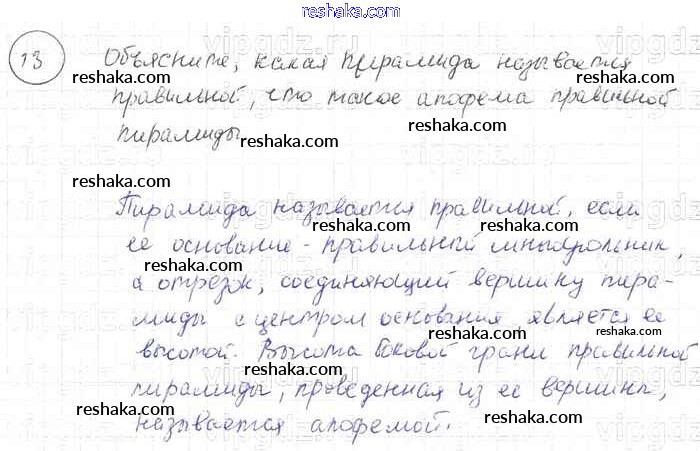 reshaka.com
13 Объясните, какая пирамида называется
reshaka.com reshaka.com
правильной, что такое апофема правильной
reshaka.com
пирамиды
reshaka.com
reshaka.com reshaka.com
Пирамида называется правильной, если
ее основание - правильный многоугольник,
reshaka.com reshaka.com
а отрезок, соединяющий вершину пира-
миды с центром основания, является ее
reshaka.com reshaka.com
высотой. Высота боковой грани правильной
reshaka.com
пирамиды, проведенная из ее вершины,
reshaka.com reshaka.com
называется апофемой.